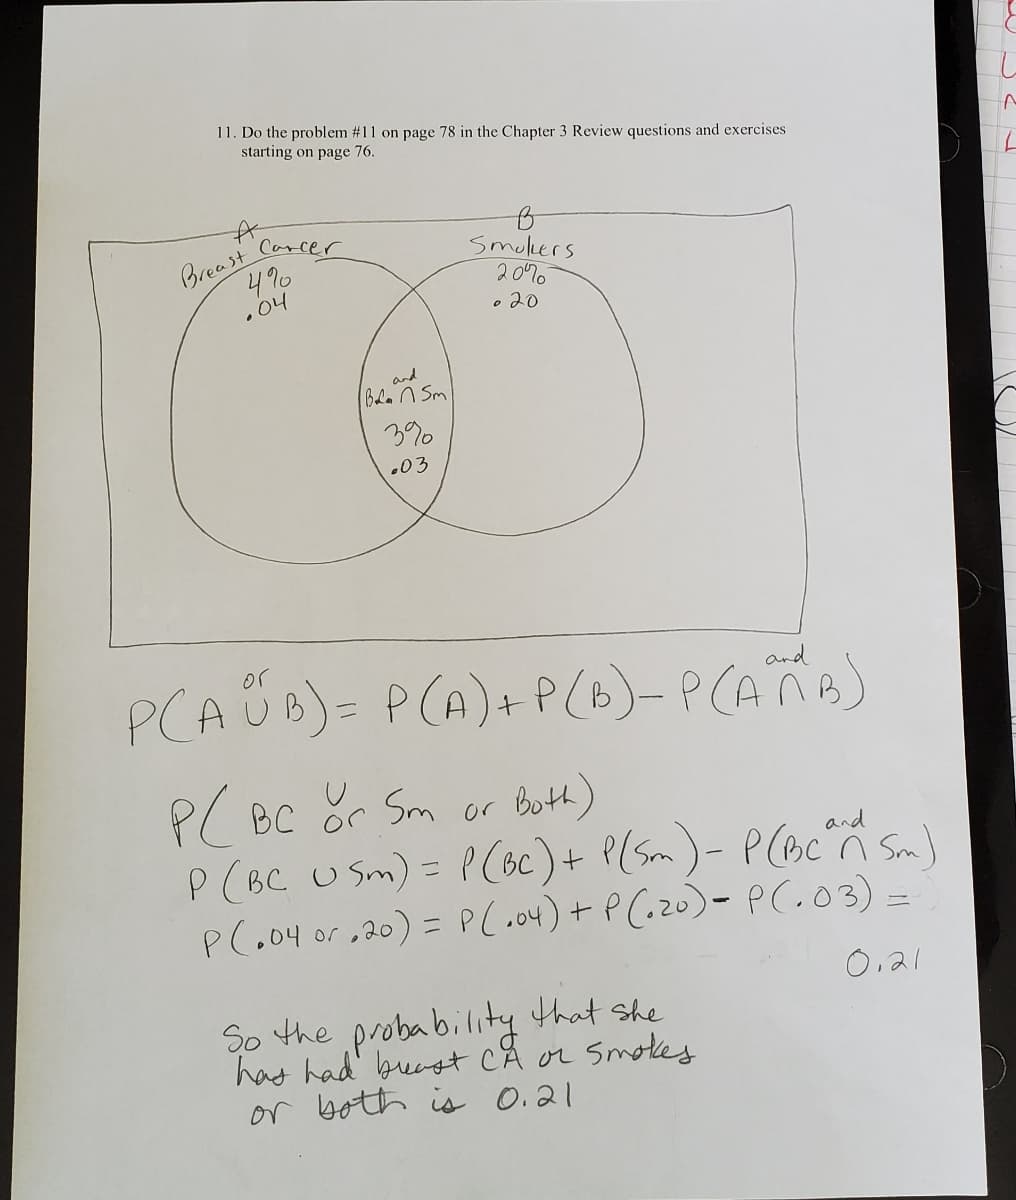 11. Do the problem #11 on page 78 in the Chapter 3 Review questions and exercises
starting on page 76.
A
Breast Cancer
4%
.04
B
Smokers
20%
.20
and
∩ Sm
3%
.03
or
and
P(A ∪ B) = P(A) + P(B) - P(A ∩ B)
∪
P( BC or Sm or Both)
and
P(BC ∪ Sm) = P(BC) + P(Sm) - P(BC ∩ Sm)
P(.04 or .20) = P(.04) + P(.20) - P(.03) =
0.21
So the probability that she
has had breast CA or smokes
or both is 0.21